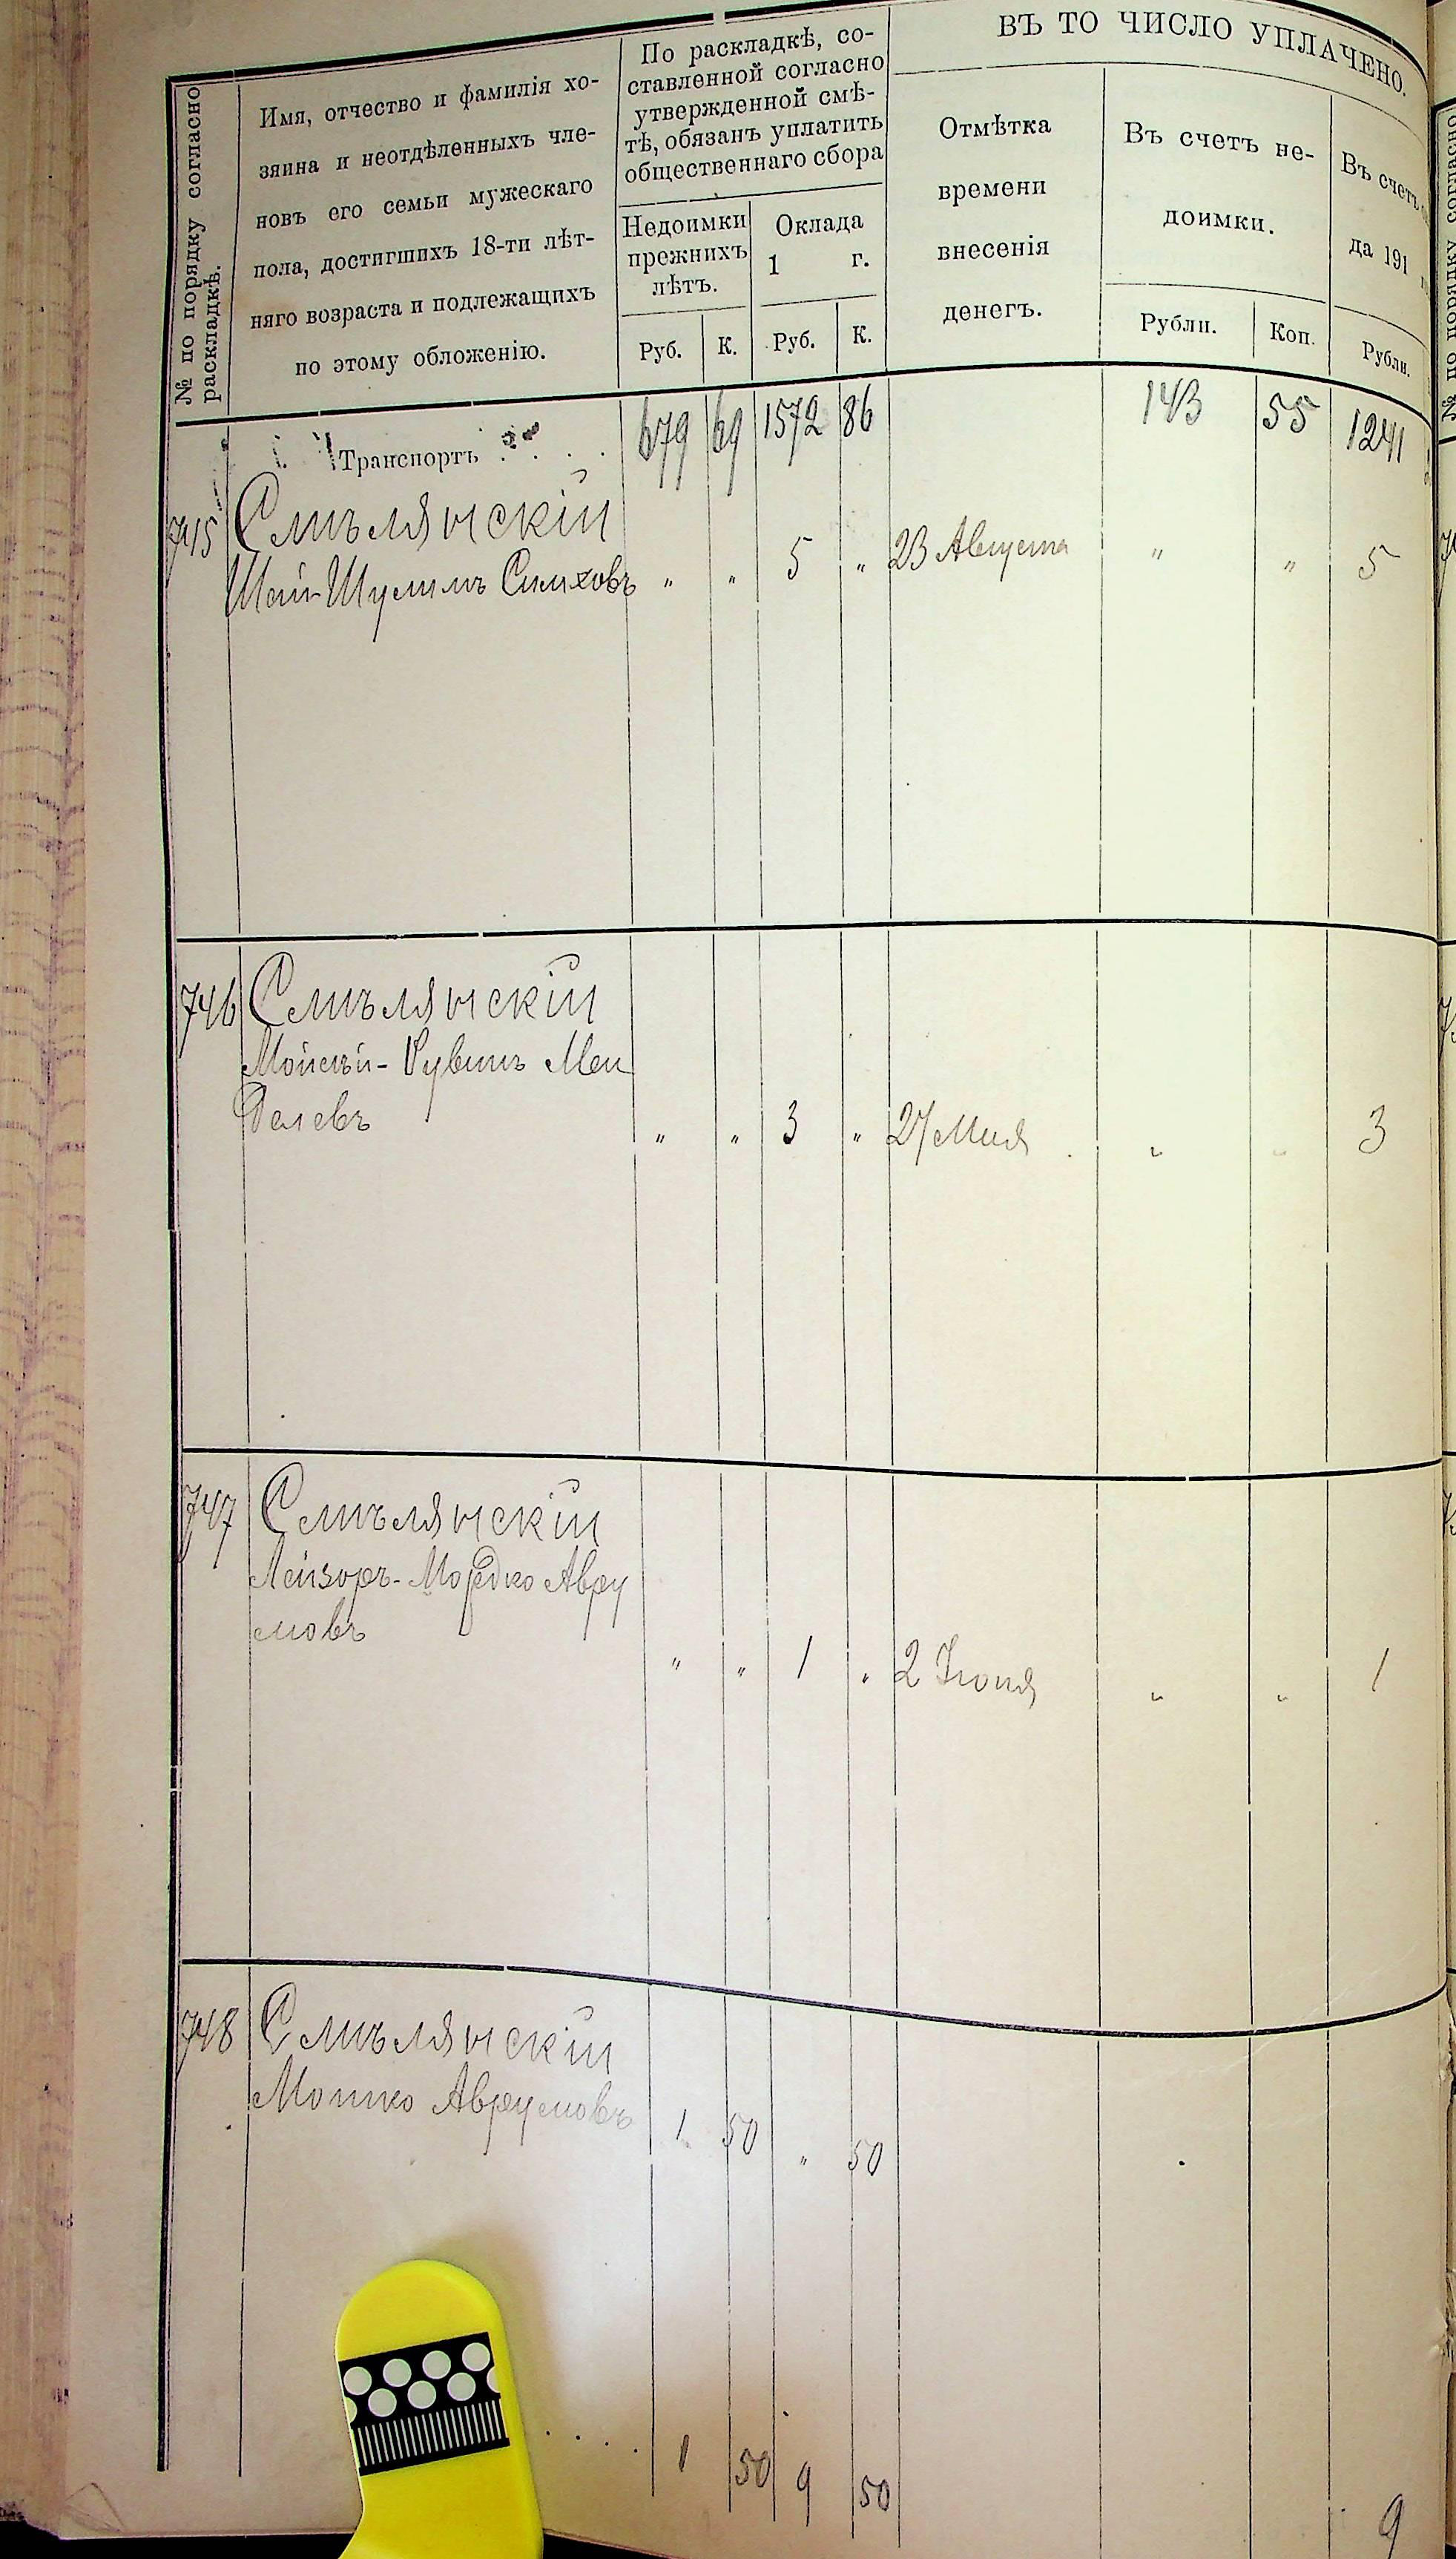 ВЪ ТО ЧИСЛО УПЛАЧЕНО.
№ по порядку согласно
раскладкѣ.
Имя, отчество и фамилія хо-
зяина и неотдѣленныхъ чле-
новъ его семьи мужескаго
пола, достигшихъ 18-ти лѣт-
няго возраста и подлежащихъ
по этому обложенію.
По раскладкѣ, со-
ставленной согласно
утвержденной смѣ-
тѣ, обязанъ уплатить
общественнаго сбора
Недоимки
прежнихъ
лѣтъ.
Оклада
1 г.
Отмѣтка
времени
внесенія
денегъ.
Въ счетъ не-
доимки.
Въ счетъ
да 191
Руб. К. Руб. К. Рубли. Коп. Рубли.
Транспортъ 679 69 1572 86 143 55 1241
745 Смѣлянскій
Шай-Шулимъ Симховъ " " 5 " 23 Августа " " 5
746 Смѣлянскій
Мойсѣй-Рувинъ Мен
делевъ " " 3 " 27 Мая " " 3
747 Смѣлянскій
Лейзоръ-Мордко Авру
мовъ " " 1 " 2 Іюня " " 1
748 Смѣлянскій
Мошко Аврумовъ 1 50 " 50
1 50 9 50 9